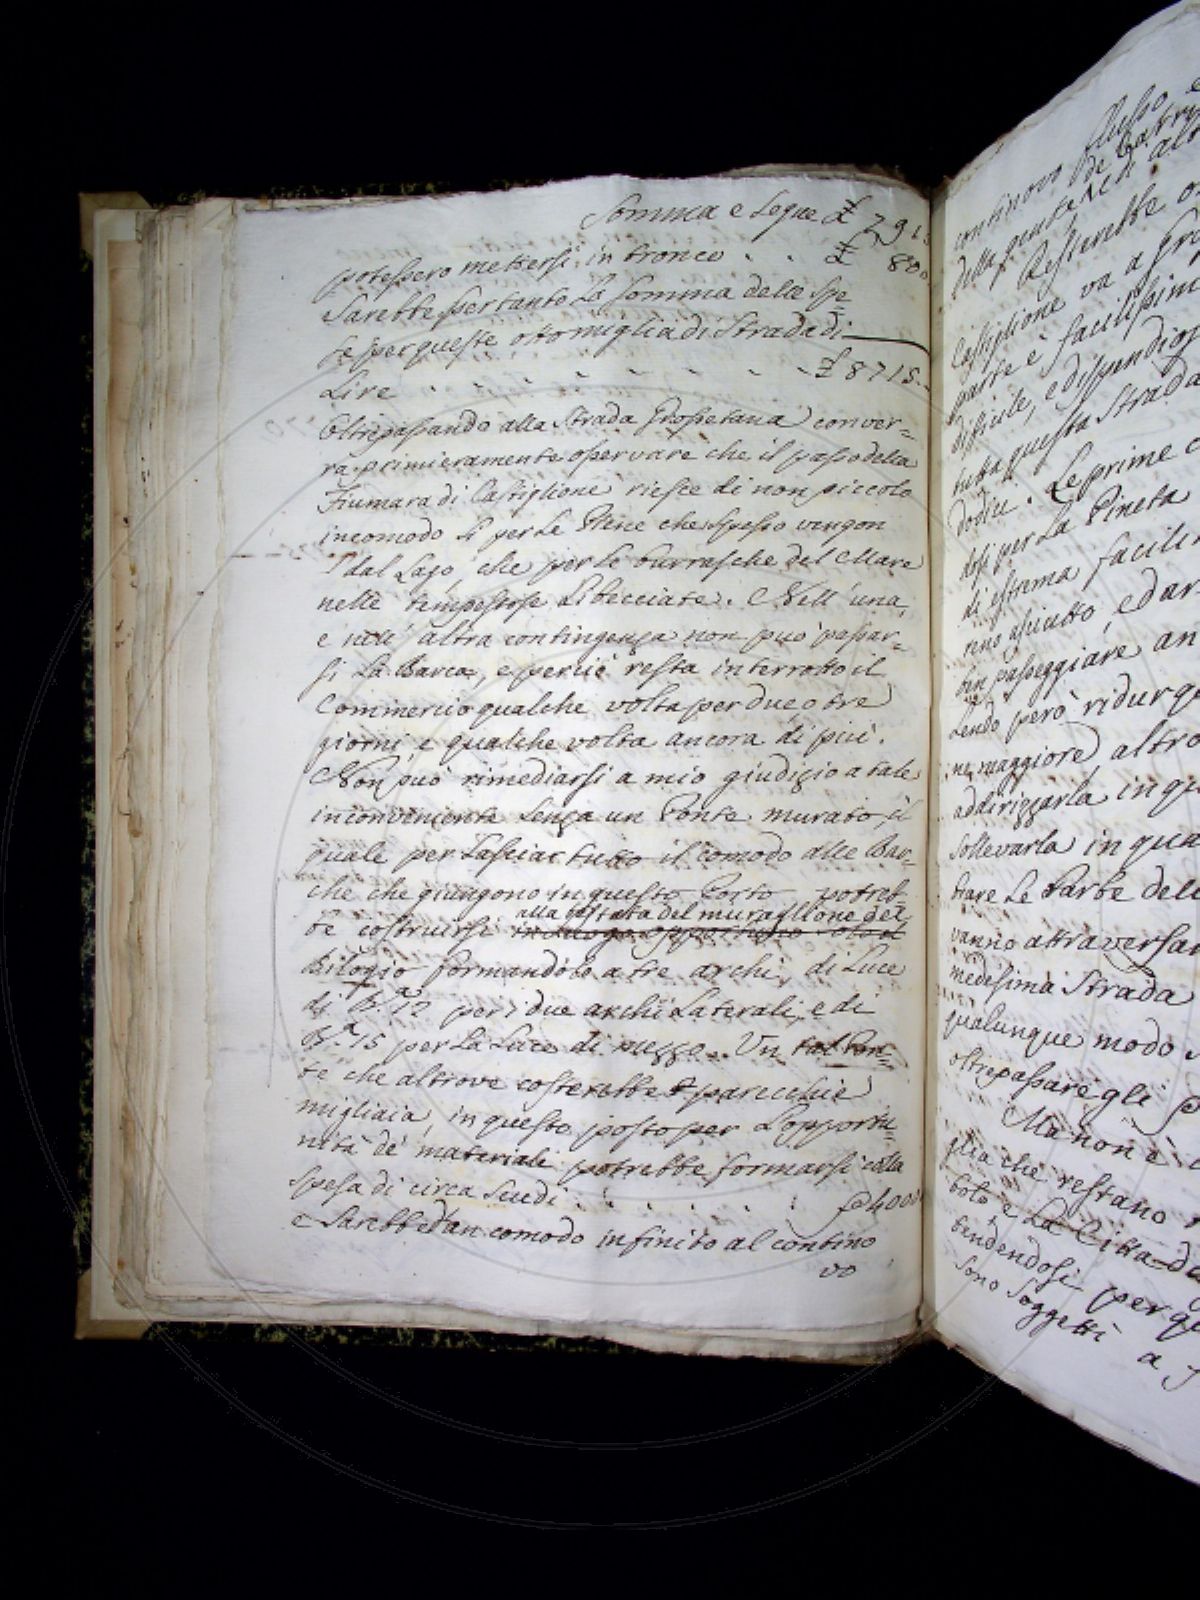 Somma e segue £ 791
potessero mettersi in tronco . . £ 800
Sarebbe pertanto La Somma delle Spe
se per queste otto miglia di Strada di
Lire . . . . . . . £ 8715.
Oltrepassando alla Strada Grossetana conver-
ra primieramente osservare che il passo della
Fiumara di Castiglione riesce di non piccolo
incomodo si per le Piene che spesso vengon
dal Lago, che per le burrasche del Mare
nelle tempestose Libecciate. Nell' una,
e nell' altra contingenza non può passar-
si La Barca, e perciò resta interrotto il
Commercio qualche volta per due o tre
giorni e qualche volta ancora di più.
Non può rimediarsi a mio giudizio a tale
inconveniente senza un Ponte murato il
quale per Lasciar tutto il comodo alle Bar-
che che giungono in questo Porto potreb-
alla testata del muraglione del
be costruirsi in Luogo opportuno
Bilogio formandolo a tre archi, di Luce
di B.a 12 per i due archi Laterali, e di
B.a 15 per La Luce di mezzo. Un tal Pon-
te che altrove costerebbe parecchie
migliaia, in questo posto per L'opportu-
nità de' materiali potrebbe formarsi colla
spesa di circa Scudi . . . . . 4000
e Sarebbe d'un comodo infinito al contino
vo
flusso
continovo
della gente
Resterebbe
Castiglione va a Gro
parte è facilissim
difficile, e dispendios
tutta questa Strada
dodici. Le prime
dosi per La Pineta
di estrema facili
reno asciutto, e dar
ben passeggiare an
Lendo però ridurq
ne maggiore, altro
addirizzarla in qu
sollevarla in qua
trare Le Barbe dell
vanno attraversan
medesima Strada
qualunque modo
oltrepassare gli
Ma non è
glia che restano
bolo e La Città d
tendendosi per qu
sono soggetti a